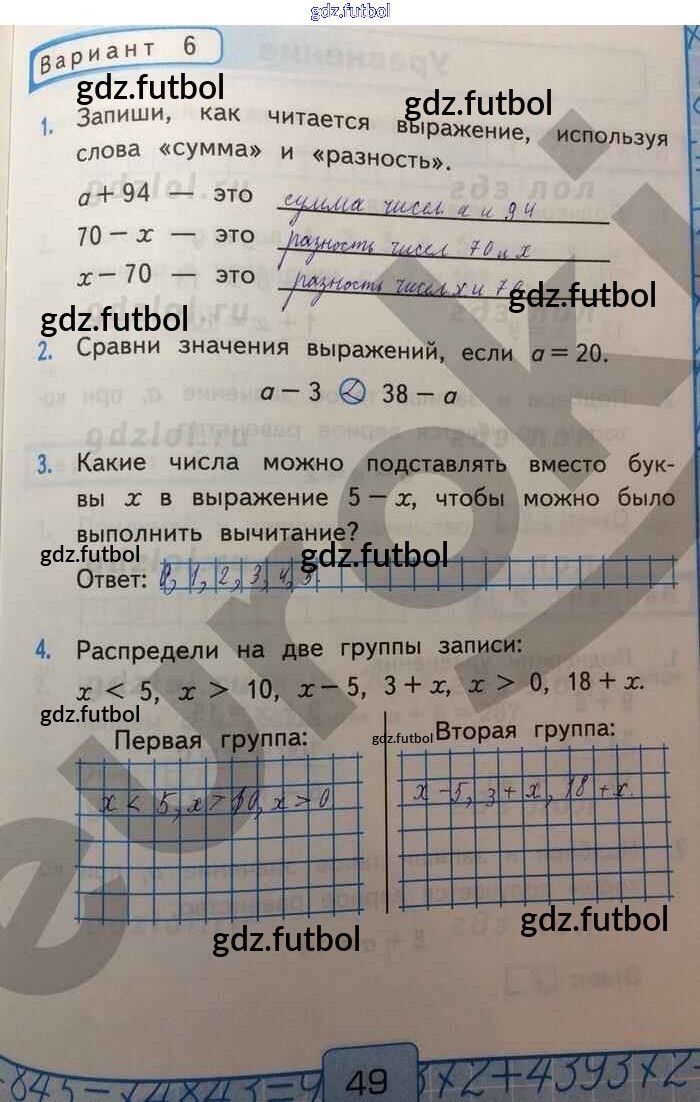 gdz.futbol
Вариант 6
gdz.futbol
gdz.futbol
1. Запиши, как читается выражение, используя
слова «сумма» и «разность».
a + 94 — это сумма чисел а и 94
70 − x — это разность чисел 70 и х
x − 70 — это разность чисел х и 70
gdz.futbol
gdz.futbol
2. Сравни значения выражений, если a = 20.
a − 3 < 38 − a
3. Какие числа можно подставлять вместо бук-
вы x в выражение 5 − x, чтобы можно было
выполнить вычитание?
gdz.futbol
gdz.futbol
Ответ: 0, 1, 2, 3, 4, 5.
4. Распредели на две группы записи:
x < 5, x > 10, x − 5, 3 + x, x > 0, 18 + x.
gdz.futbol
Первая группа:
gdz.futbol
Вторая группа:
x < 5, x > 10, x > 0
x − 5, 3 + x, 18 + x.
gdz.futbol
gdz.futbol
euroki
49